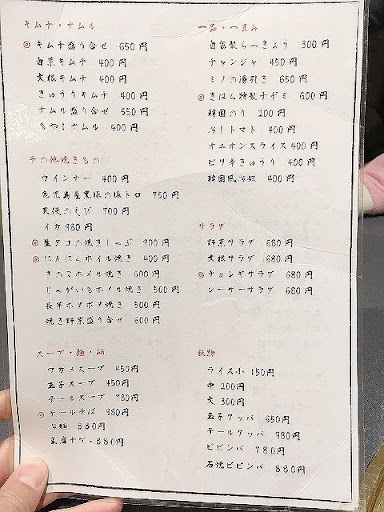 キムチ・ナムル
◎ キムチ盛り合せ 650円
白菜キムチ 400円
大根キムチ 400円
きゅうりキムチ 400円
ナムル盛り合せ 550円
もやしナムル 400円
その他焼きもの
ウインナー 400円
鹿児島産黒豚の豚トロ 750円
天使のえび 700円
イカ 980円
◎ 生タコの焼きしゃぶ 900円
◎ にんにくホイル焼き 400円
きのこホイル焼き 600円
じゃがいもホイル焼き 500円
長芋ホクホク焼き 500円
焼き野菜盛り合せ 600円
スープ・麺・鍋
ワカメスープ 450円
玉子スープ 450円
テールスープ 980円
◎ テールそば 980円
冷麺 880円
豆腐チゲ 880円
一品・つまみ
自家製らっきょう 300円
チャンジャ 450円
ミノの湯引き 650円
◎ きはら特製チヂミ 600円
韓国のり 200円
冷しトマト 400円
オニオンスライス 400円
ピリ辛きゅうり 400円
韓国風冷奴 400円
サラダ
野菜サラダ 680円
大根サラダ 680円
◎ チョレギサラダ 680円
シーザーサラダ 680円
飯物
ライス小 150円
中 200円
大 300円
玉子クッパ 650円
テールクッパ 980円
ビビンバ 780円
石焼ビビンバ 880円